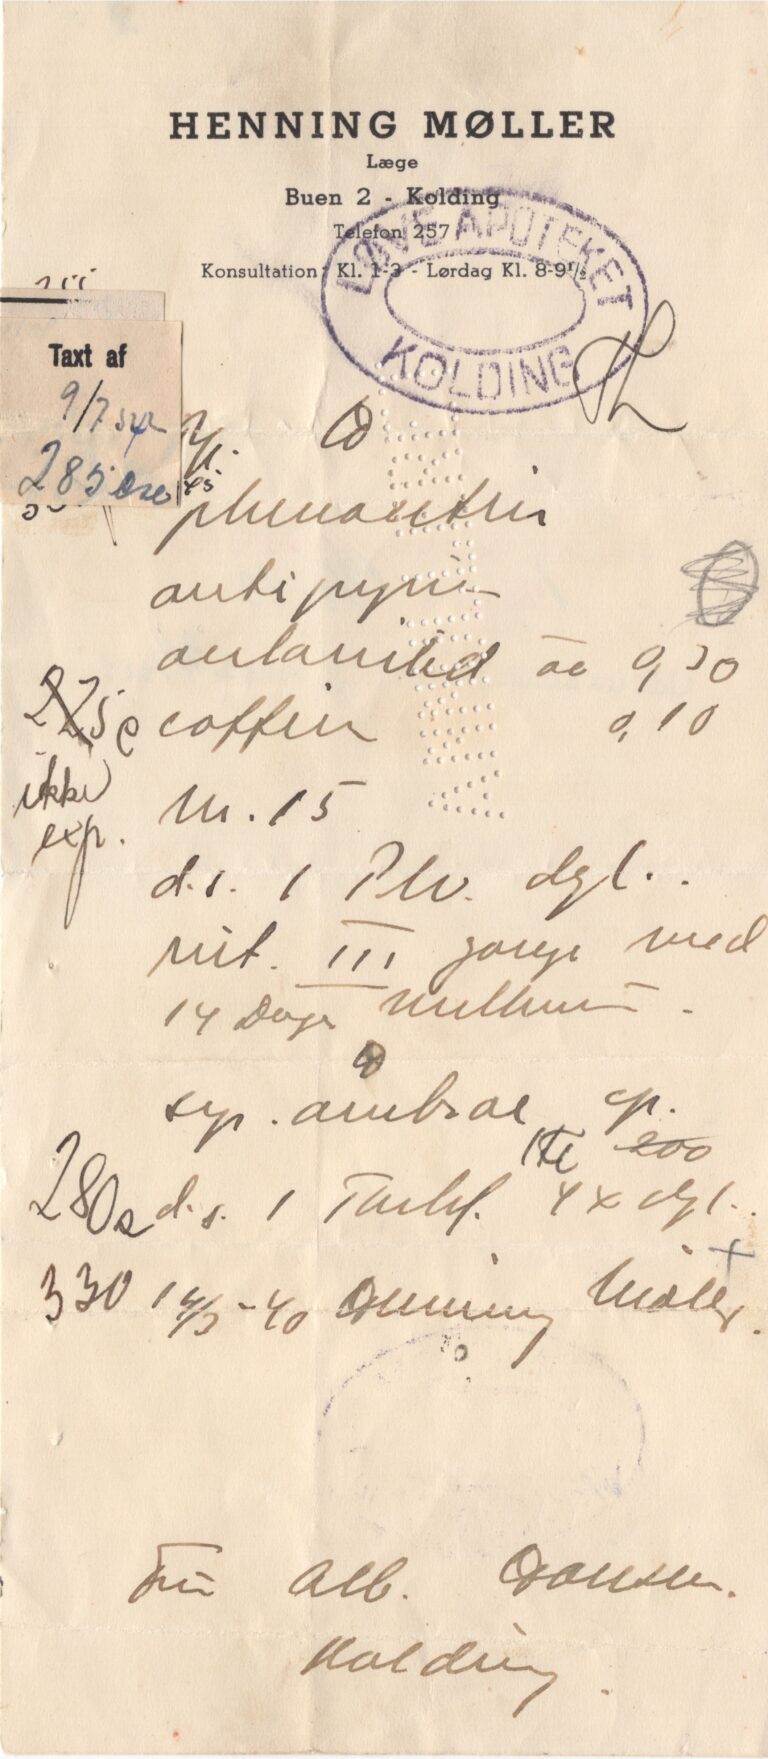 HENNING MØLLER
Læge
Buen 2 - Kolding
Telefon 257
Konsultation: Kl. 1-3 - Lørdag Kl. 8-9½
LØVE APOTEKET
KOLDING
Taxt af
9/7
285 Øre
phenacetin
antipyrin
antanilid aa 0,30
225 coffein 0,10
ikke
exp.
M. 15
d.s. 1 Plv. dgl..
rit. III gange med
14 Dages Mellemrum.
syr. ambrae cp.
200
280 d.s. 1 Barkf. 4 x dgl..
330 14/5-40 Henning Møller.
Fru Alb. Hansen.
Kolding.